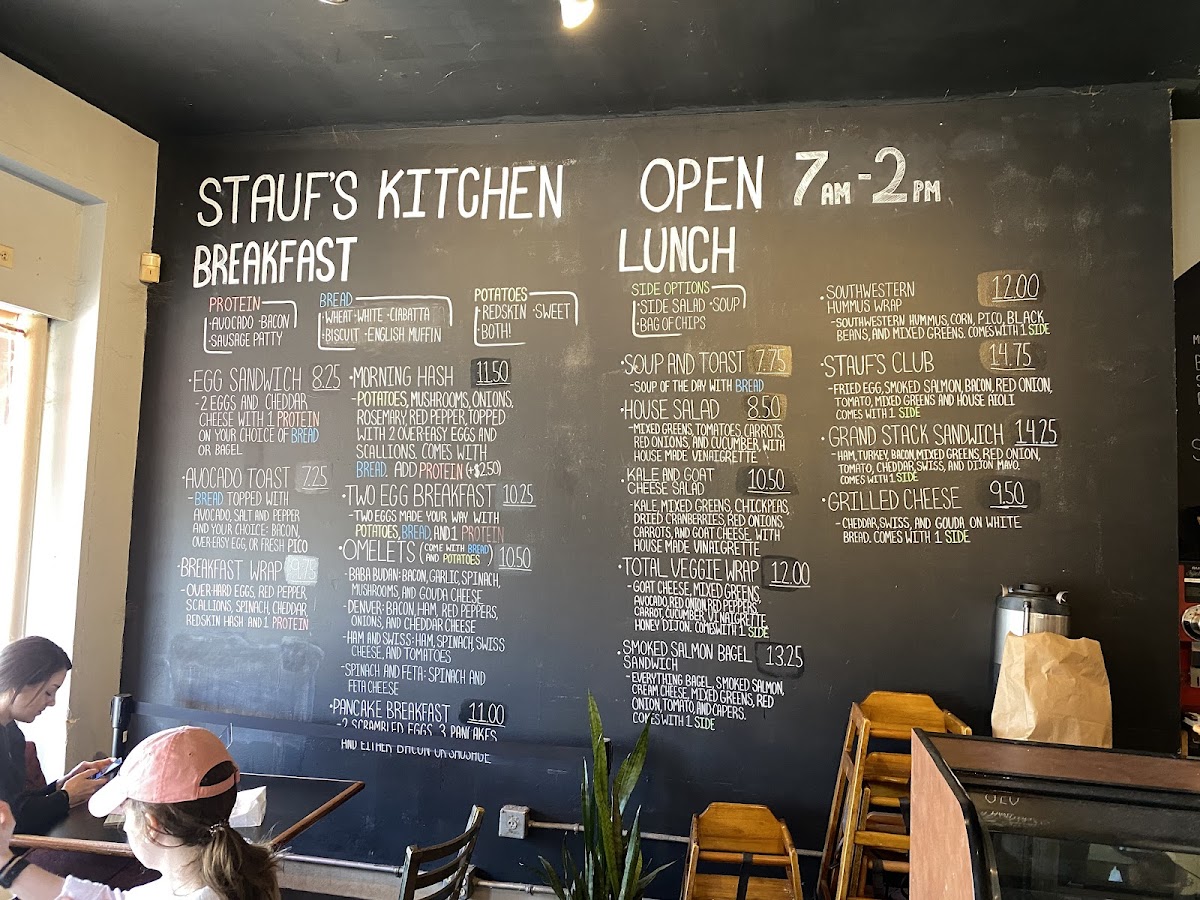 STAUF'S KITCHEN
OPEN 7AM-2PM
BREAKFAST
PROTEIN
·AVOCADO ·BACON
·SAUSAGE PATTY
BREAD
·WHEAT ·WHITE ·CIABATTA
·BISCUIT ·ENGLISH MUFFIN
POTATOES
·REDSKIN ·SWEET
·BOTH!
·EGG SANDWICH 8.25
-2 EGGS AND CHEDDAR
CHEESE WITH 1 PROTEIN
ON YOUR CHOICE OF BREAD
OR BAGEL
·AVOCADO TOAST 7.25
-BREAD TOPPED WITH
AVOCADO, SALT AND PEPPER
AND YOUR CHOICE- BACON,
OVER EASY EGG, OR FRESH PICO
·BREAKFAST WRAP 9.75
-OVER-HARD EGGS, RED PEPPER
SCALLIONS, SPINACH, CHEDDAR,
REDSKIN HASH AND 1 PROTEIN
·MORNING HASH 11.50
-POTATOES, MUSHROOMS, ONIONS,
ROSEMARY, RED PEPPER, TOPPED
WITH 2 OVER-EASY EGGS AND
SCALLIONS. COMES WITH
BREAD. ADD PROTEIN (+$2.50)
·TWO EGG BREAKFAST 10.25
-TWO EGGS MADE YOUR WAY WITH
POTATOES, BREAD, AND 1 PROTEIN
·OMELETS (COME WITH BREAD
AND POTATOES) 10.50
-BABA BUDAN: BACON, GARLIC, SPINACH,
MUSHROOMS, AND GOUDA CHEESE
-DENVER: BACON, HAM, RED PEPPERS,
ONIONS, AND CHEDDAR CHEESE
-HAM AND SWISS: HAM, SPINACH, SWISS
CHEESE, AND TOMATOES
-SPINACH AND FETA: SPINACH AND
FETA CHEESE
·PANCAKE BREAKFAST 11.00
-2 SCRAMBLED EGGS, 3 PANCAKES
AND EITHER BACON OR SAUSAGE
LUNCH
SIDE OPTIONS
·SIDE SALAD ·SOUP
·BAG OF CHIPS
·SOUP AND TOAST 7.75
-SOUP OF THE DAY WITH BREAD
·HOUSE SALAD 8.50
-MIXED GREENS, TOMATOES, CARROTS,
RED ONIONS, AND CUCUMBER, WITH
HOUSE MADE VINAIGRETTE
·KALE AND GOAT
CHEESE SALAD 10.50
-KALE, MIXED GREENS, CHICKPEAS,
DRIED CRANBERRIES, RED ONIONS,
CARROTS, AND GOAT CHEESE, WITH
HOUSE MADE VINAIGRETTE
·TOTAL VEGGIE WRAP 12.00
-GOAT CHEESE, MIXED GREENS,
AVOCADO, RED ONION, RED PEPPERS,
CARROT, CUCUMBER, VINAIGRETTE
HONEY DIJON. COMES WITH 1 SIDE
·SMOKED SALMON BAGEL
SANDWICH 13.25
-EVERYTHING BAGEL, SMOKED SALMON,
CREAM CHEESE, MIXED GREENS, RED
ONION, TOMATO, AND CAPERS.
COMES WITH 1 SIDE
·SOUTHWESTERN
HUMMUS WRAP 12.00
-SOUTHWESTERN HUMMUS, CORN, PICO, BLACK
BEANS, AND MIXED GREENS. COMES WITH 1 SIDE
·STAUF'S CLUB 14.75
-FRIED EGG, SMOKED SALMON, BACON, RED ONION,
TOMATO, MIXED GREENS AND HOUSE AIOLI
COMES WITH 1 SIDE
·GRAND STACK SANDWICH 14.25
-HAM, TURKEY, BACON, MIXED GREENS, RED ONION,
TOMATO, CHEDDAR, SWISS, AND DIJON MAYO.
COMES WITH 1 SIDE
·GRILLED CHEESE 9.50
-CHEDDAR, SWISS, AND GOUDA ON WHITE
BREAD. COMES WITH 1 SIDE